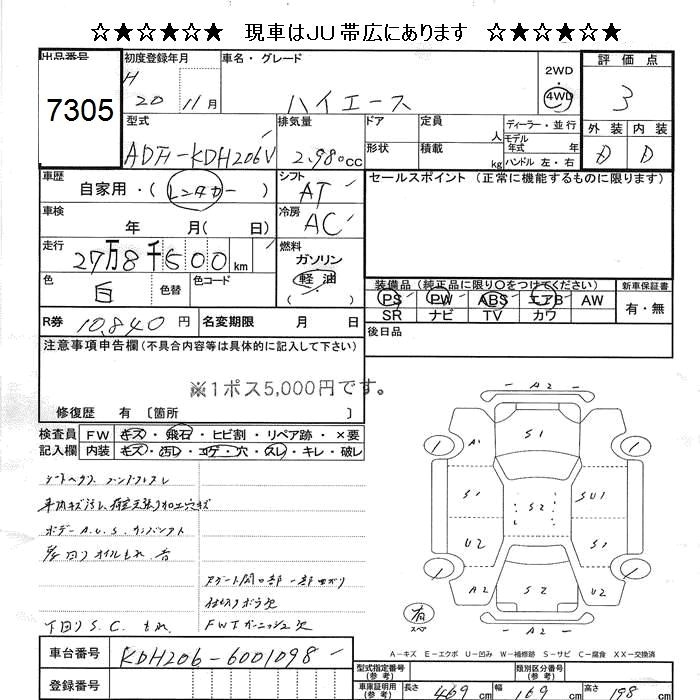 ☆★☆★☆★ 現車はJU帯広にあります ☆★☆★☆★
出品番号 初度登録年月 車名・グレード 2WD 4WD 評価点
7305 H 20 11月 ハイエース 3
型式 排気量 ドア 定員 人 ディーラー・並行 外装 内装
KDH206V 2.98 cc 形状 積載 kg モデル年式 年 ハンドル 左・右 D D
車歴 自家用・(レンタカー) シフト AT セールスポイント (正常に機能するものに限ります)
車検 年 月( 日) 冷房 AC
走行 27万8千500 km 燃料 ガソリン 軽油 ( )
色 白 色替 色コード 装備品 (純正品に限り○をつけてください) 新車保証書
PS PW ABS エアB AW 有・無
SR ナビ TV カワ
R券 10,840 円 名変期限 月 日 後日品
注意事項申告欄 (不具合内容等は具体的に記入して下さい)
※1ポス5,000円です。
修復歴 有 〔箇所 〕
検査員 FW キズ・飛石・ヒビ割・リペア跡・×要
記入欄 内装 キズ・汚レ・コゲ・穴・スレ・キレ・破レ
ボデー A.U.S.
下回り S.C.
A2
S1
A1
1 1
S1 S2 SU1
U2 S1
1 1
A2 S2 U2
A2
有
スペア
A-キズ E-エクボ U-凹み W-補修跡 S-サビ C-腐食 XX-交換済
車台番号 KDH206-6001098
登録番号
型式指定番号 (参考) 類別区分番号 (参考)
車庫証明用 (参考) 長さ 469 cm 幅 169 cm 高さ 198 cm